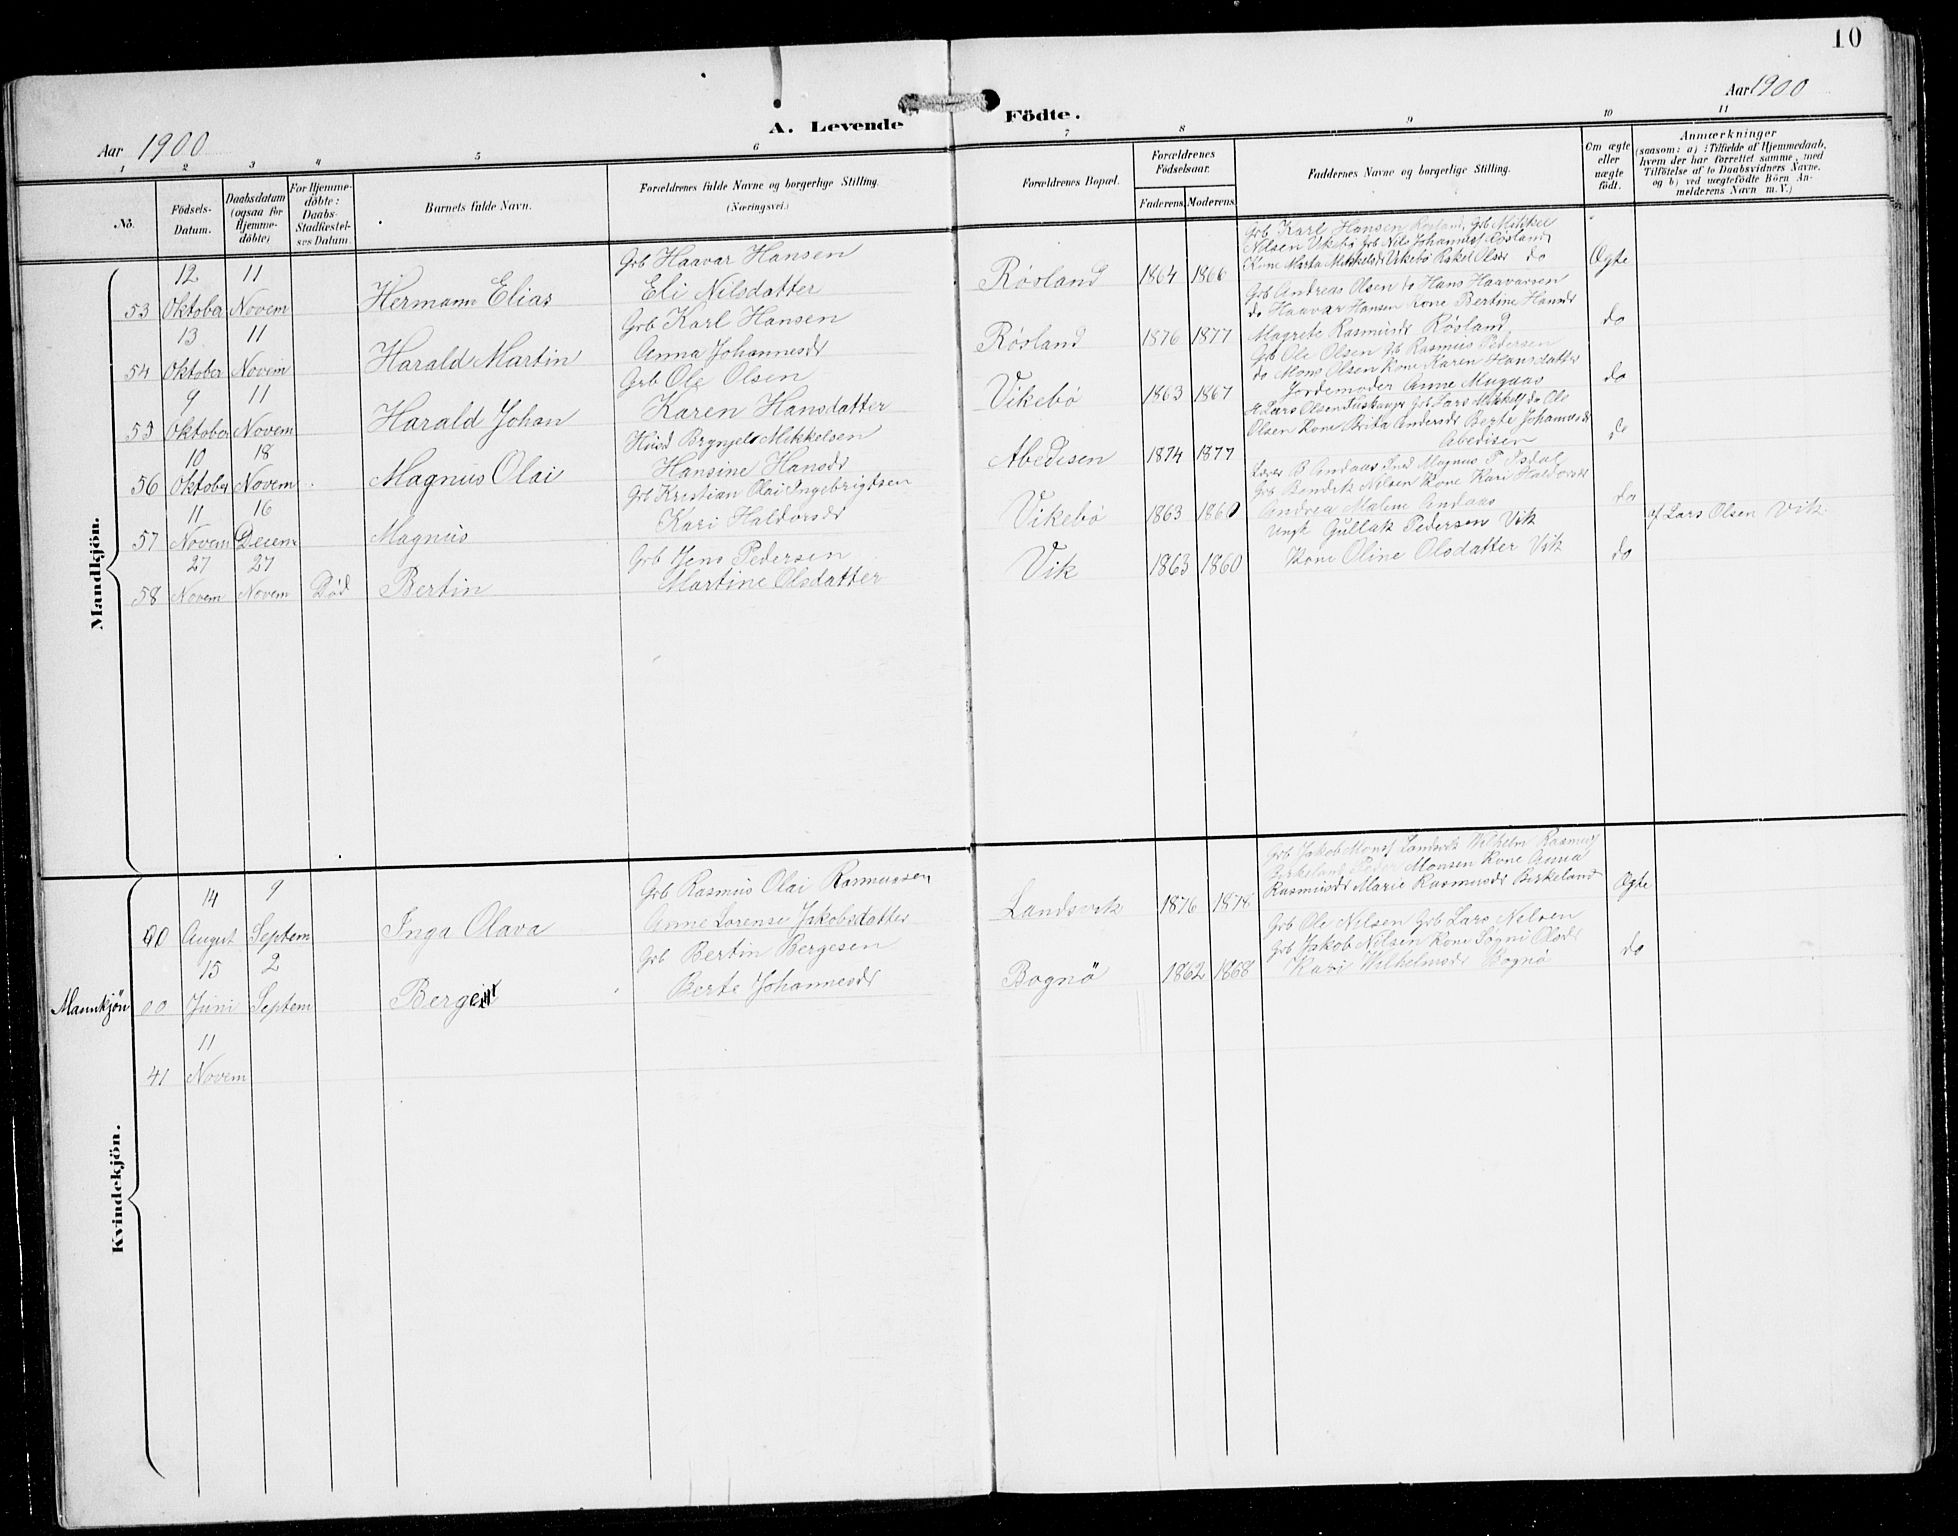 10
Aar 1900
A. Levende Födte.
Aar 1900
1 2 3 4 5 6 7 8 9 10 11
No.
Födsels-
Datum.
Daabsdatum
(ogsaa for
Hjemme-
döbte)
For Hjemme-
döbte:
Daabs-
Stadfæstel-
ses Datum.
Barnets fulde Navn.
Forældrenes fulde Navne og borgerlige Stilling.
(Næringsvei.)
Forældrenes Bopæl.
Forældrenes
Födselsaar.
Faderens. Moderens.
Faddernes Navne og borgerlige Stilling.
Om ægte
eller
uægte
födt.
Anmærkninger
(saasom: a) i Tilfælde af Hjemmedaab,
hvem der har forrettet samme, med
Tilföielse af to Daabsvidners Navne,
og b) ved uægtefödte Börn An-
melderens Navn m. V.)
Mandkjön.
12 11 Grb Haavar Hansen
53 Oktober Novem Hermann Elias Eli Nilsdatter Røsland 1864 1866 Ægte
Grb Karl Hansen Røsland, Grb Mikkel
Nilsen Vikebø Grb Nils Johannes Røsland
Kone Marta Mikkelsdr Vikebø Rakel Olsdr do
13 11 Grb Karl Hansen
54 Oktober Novem Harald Martin Anna Johannesdr Røsland 1876 1877 do
Grb Andreas Olsen do Hans Haavarsen
do Haavar Hansen Kone Bertine Hansdr
Magrete Rasmusdr Røsland
9 11 Grb Ole Olsen
55 Oktober Novem Harald Johan Karen Hansdatter Vikebø 1863 1867 do
Grb Ole Olsen Grb Rasmus Pedersen
do Mons Olsen Kone Karen Hansdatter
Jordemoder Anne Mugaas
10 18 Husd Brynjel Mikkelsen
56 Oktober Novem Magnus Olai Hansine Hansdr Abedisen 1874 1877 do
Lars Olsen Grb Lars Mikkels do Ole
Olsen Kone Brita Andersdr Berte Johannesdr
Abedisen
11 16 Grb Kristian Olai Ingebrigtsen
57 Novem Decem Magnus Kari Haldorsdr Vikebø 1863 1860 do
Lærer B Andaas Magnus P Isdal
Grb Bendik Nilsen Kone Kari Haldorsdr
Andrea Maline Andaas
27 27 Grb Jens Pedersen
58 Novem Novem Død Bertin Martine Olsdatter Vik 1863 1860 do
Ungk Gullak Pedersen Vik
Kone Oline Olsdatter Vik
af Lars Olsen Vik
Kvindekjön.
14 9 Grb Rasmus Olai Rasmussen
00 August Septem Inga Olava Anne Lorense Jakobsdatter Landsvik 1876 1878 Ægte
Grb Jakob Mons Landsvik Wilhelm Rasmus
Birkeland Peder Monsen Kone Anna
Rasmusdr Marie Rasmusdr Birkeland
15 2 Grb Bertin Bergesen
Mannkjön 00 Juni Septem Berge Berte Johannesdr Bognö 1862 1868 do
Grb Ole Nilsen Grb Lars Nilsen
Grb Jakob Nilsen Kone Sogni Olsdr
Kari Wilhelmsdr Bognö
11
41 Novem